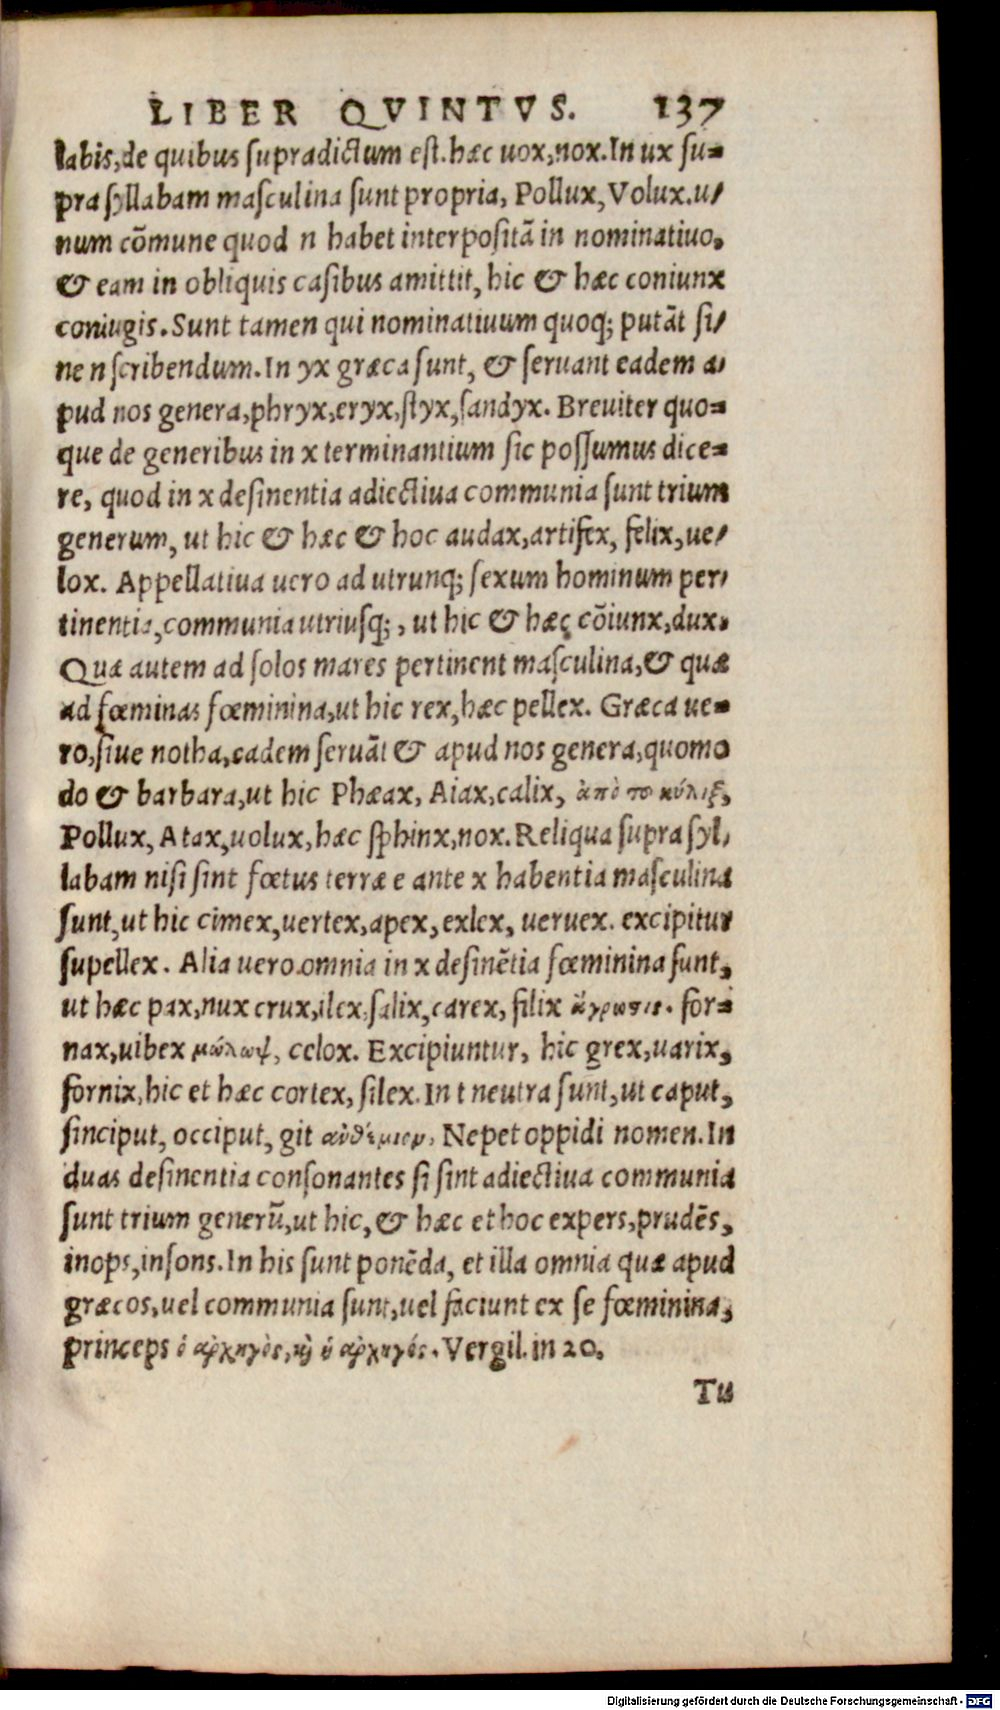 LIBER QVINTVS. 137
labis,de quibus supradictum est.hæc uox,nox.In ux su-
pra syllabam masculina sunt propria, Pollux,Volux.u-
num cōmune quod n habet interpositā in nominatiuo,
& eam in obliquis casibus amittit, hic & hæc coniunx
coniugis.Sunt tamen qui nominatiuum quoq; putāt si-
ne n scribendum.In yx græca sunt, & seruant eadem a-
pud nos genera,phryx,eryx,styx,sandyx. Breuiter quo-
que de generibus in x terminantium sic possumus dice-
re, quod in x desinentia adiectiua communia sunt trium
generum, ut hic & hæc & hoc audax,artifex, felix,ue-
lox. Appellatiua uero ad utrunq; sexum hominum per-
tinentia,communia utriusq; , ut hic & hæc cōiunx,dux.
Quæ autem ad solos mares pertinent masculina,& quæ
ad fœminas fœminina,ut hic rex,hæc pellex. Græca ue-
ro,siue notha,eadem seruāt & apud nos genera,quomo
do & barbara,ut hic Phæax, Aiax,calix, ἀπὸ το κύλιξ,
Pollux, Atax,uolux,hæc sphinx,nox.Reliqua supra syl-
labam nisi sint fœtus terræ e ante x habentia masculina
sunt,ut hic cimex,uertex,apex,exlex, ueruex. excipitur
supellex. Alia uero.omnia in x desinētia fœminina sunt,
ut hæc pax,nux crux,ilex,salix,carex, filix ἄγρωσις. for-
nax,uibex μώλωψ, celox. Excipiuntur, hic grex,uarix,
fornix,hic et hæc cortex, silex.In t neutra sunt,ut caput,
sinciput, occiput, git αὐθέμιον, Nepet oppidi nomen.In
duas desinentia consonantes si sint adiectiua communia
sunt trium generū,ut hic, & hæc et hoc expers,prudēs,
inops,insons.In his sunt ponēda, et illa omnia quæ apud
græcos,uel communia sunt,uel faciunt ex se fœminina,
princeps ὁ ἀρχηγὸς,κỳ ἡ ἀρχηγός. Vergil.in 20.
Tu
Digitalisierung gefördert durch die Deutsche Forschungsgemeinschaft - DFG